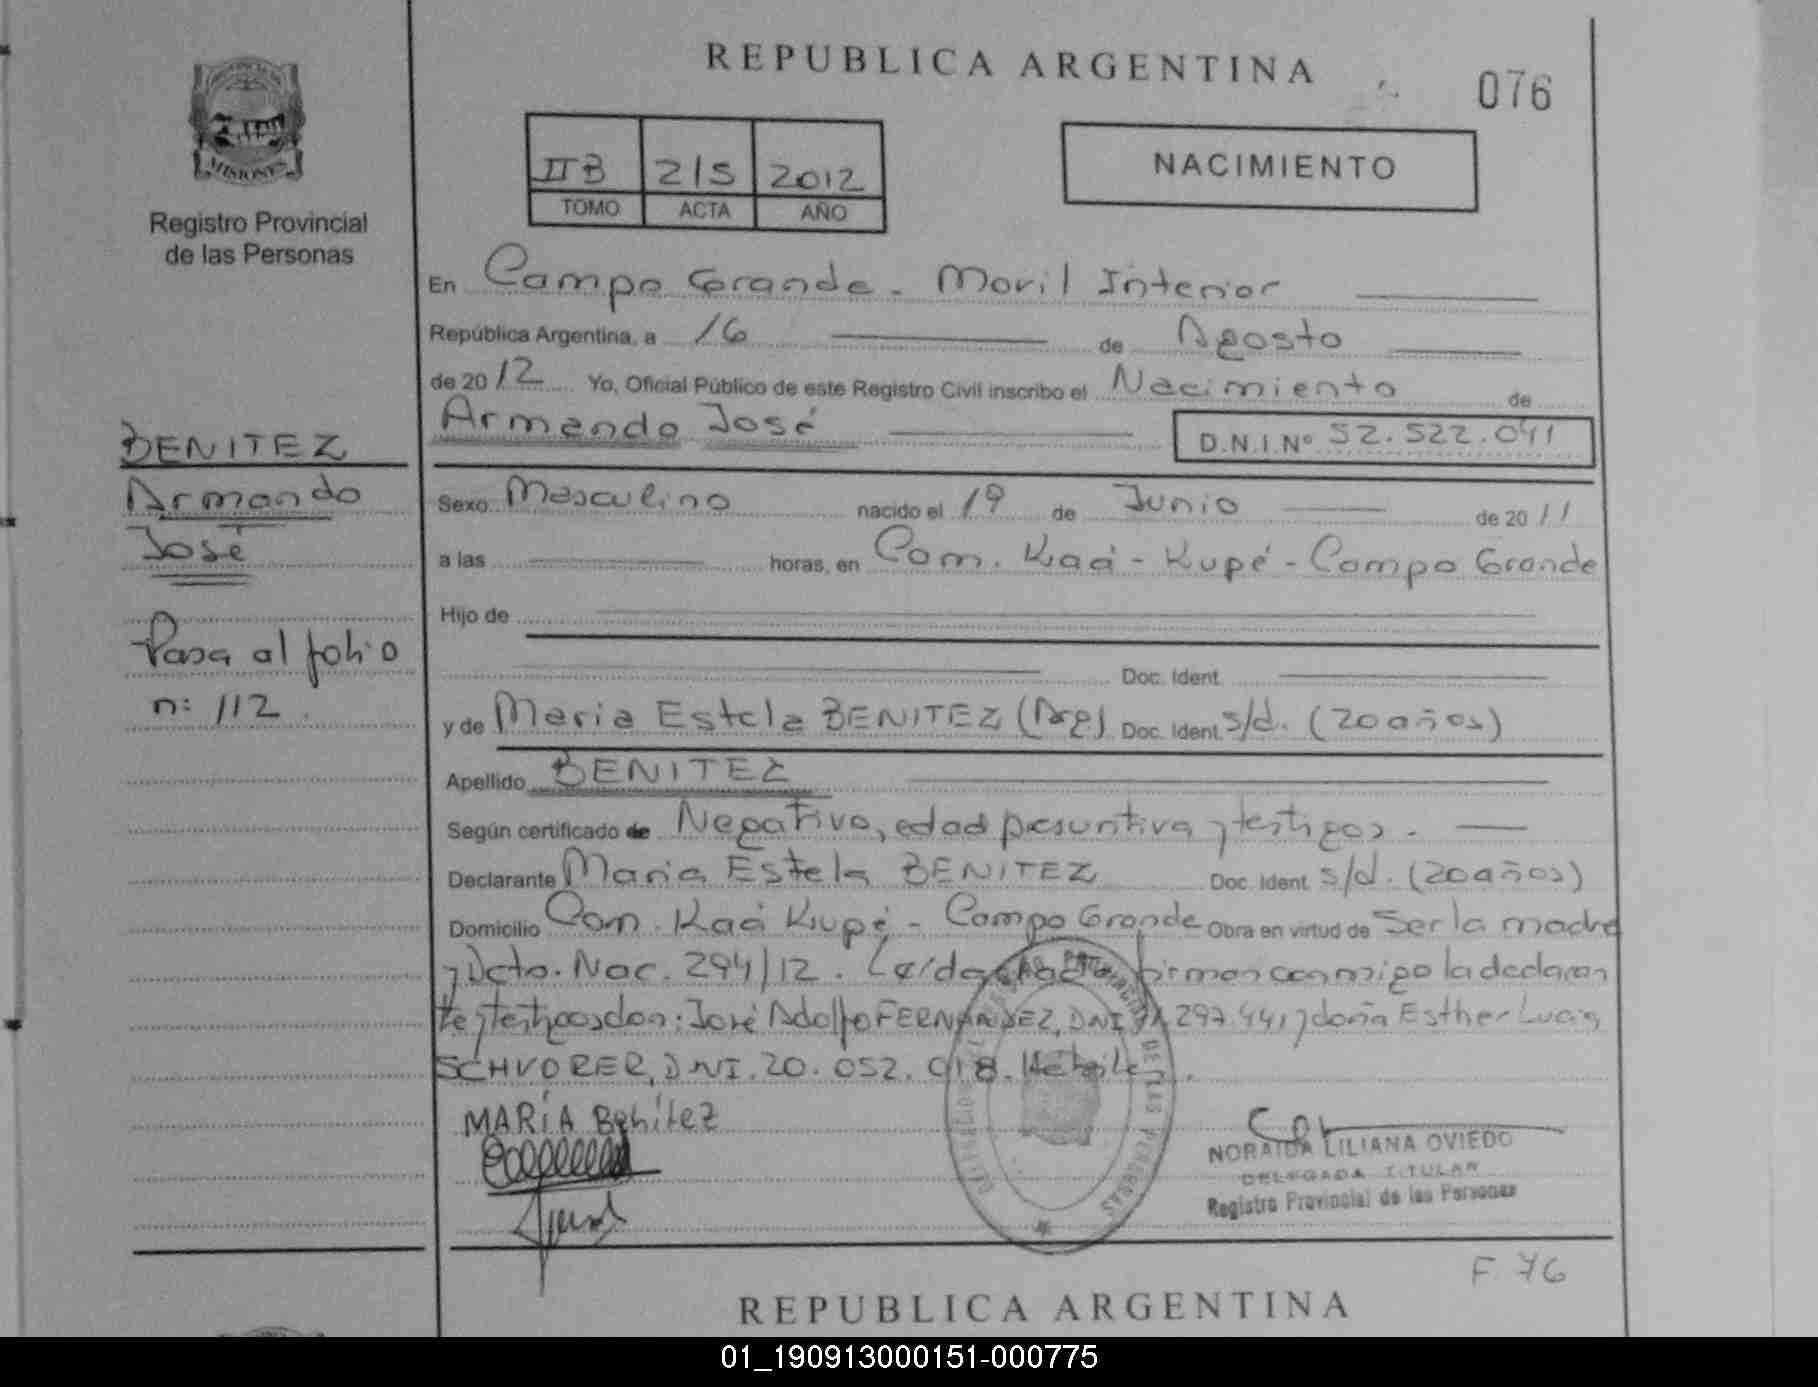 REPUBLICA ARGENTINA
076
MISIONES
Registro Provincial
de las Personas
IIB 215 2012
TOMO ACTA AÑO
NACIMIENTO
En Campo Grande - Movil Interior
República Argentina, a 16 de Agosto
de 2012 Yo, Oficial Público de este Registro Civil inscribo el Nacimiento de
Armando José D.N.I.Nº 52.522.041
BENITEZ
Armando
José
Pasa al folio
n: 112.
Sexo Masculino nacido el 19 de Junio de 2011
a las horas, en Com. Kaá - Kupé - Campo Grande
Hijo de
Doc. Ident
y de Maria Estela BENITEZ (Arg) Doc. Ident s/d. (20 años)
Apellido BENITEZ
Según certificado de Negativo, edad presuntiva y testigos.
Declarante Maria Estela BENITEZ Doc. Ident s/d. (20 años)
Domicilio Com. Kaá Kupé - Campo Grande Obra en virtud de Ser la madre
y Dcto. Nac. 294/12. Leída el acta firman conmigo la declaran
te y testigos don: José Adolfo FERNANDEZ, DNI 297.441 y doña Esther Lucia
SCHVORER, DNI. 20.052.018.
MARÍA Benitez
NORAIDA LILIANA OVIEDO
DELEGADA TITULAR
Registro Provincial de las Personas
F 76
REPUBLICA ARGENTINA
01_190913000151-000775